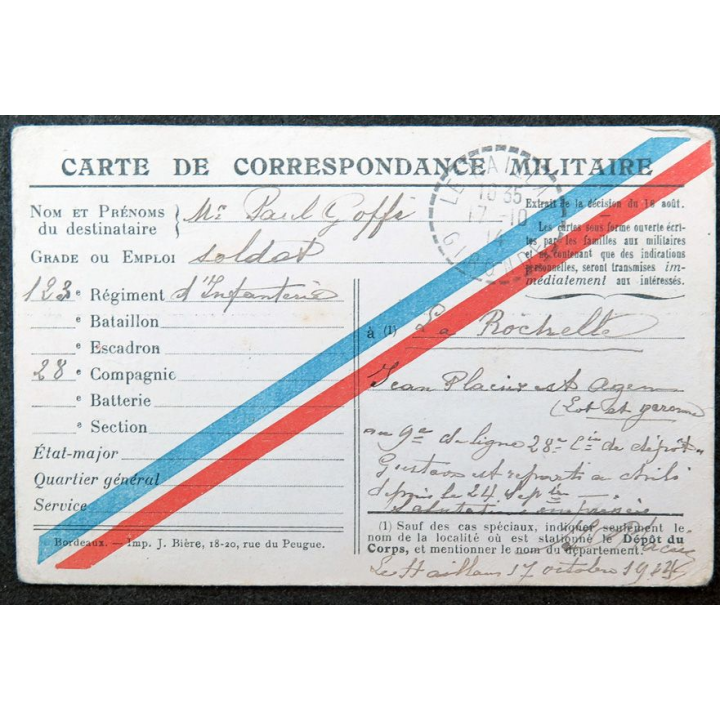 CARTE DE CORRESPONDANCE MILITAIRE
NOM ET PRÉNOMS
du destinataire } Mr Paul Goffi
GRADE OU EMPLOI soldat
123e Régiment d'Infanterie
e Bataillon
e Escadron
28e Compagnie
e Batterie
e Section
État-major
Quartier général
Service
Bordeaux. — Imp. J. Bière, 18-20, rue du Peugue.
10 35
17-10
14
GIRONDE
Extrait de la décision du 16 août.
Les cartes sous forme ouverte écri-
tes par les familles aux militaires
et ne contenant que des indications
personnelles, seront transmises im-
médiatement aux intéressés.
à (1) La Rochelle
Jean Placier est agen
(Lot et garonne
au 9e de ligne 28e Cie de dépôt
Gustave est reparti a
depuis le 24 Septe
Salutation
(1) Sauf des cas spéciaux, indiquer seulement le
nom de la localité où est stationné le Dépôt du
Corps, et mentionner le nom du département.
Le Haillan 17 octobre 1914